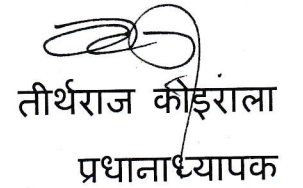 तीर्थराज कोइराला
प्रधानाध्यापक